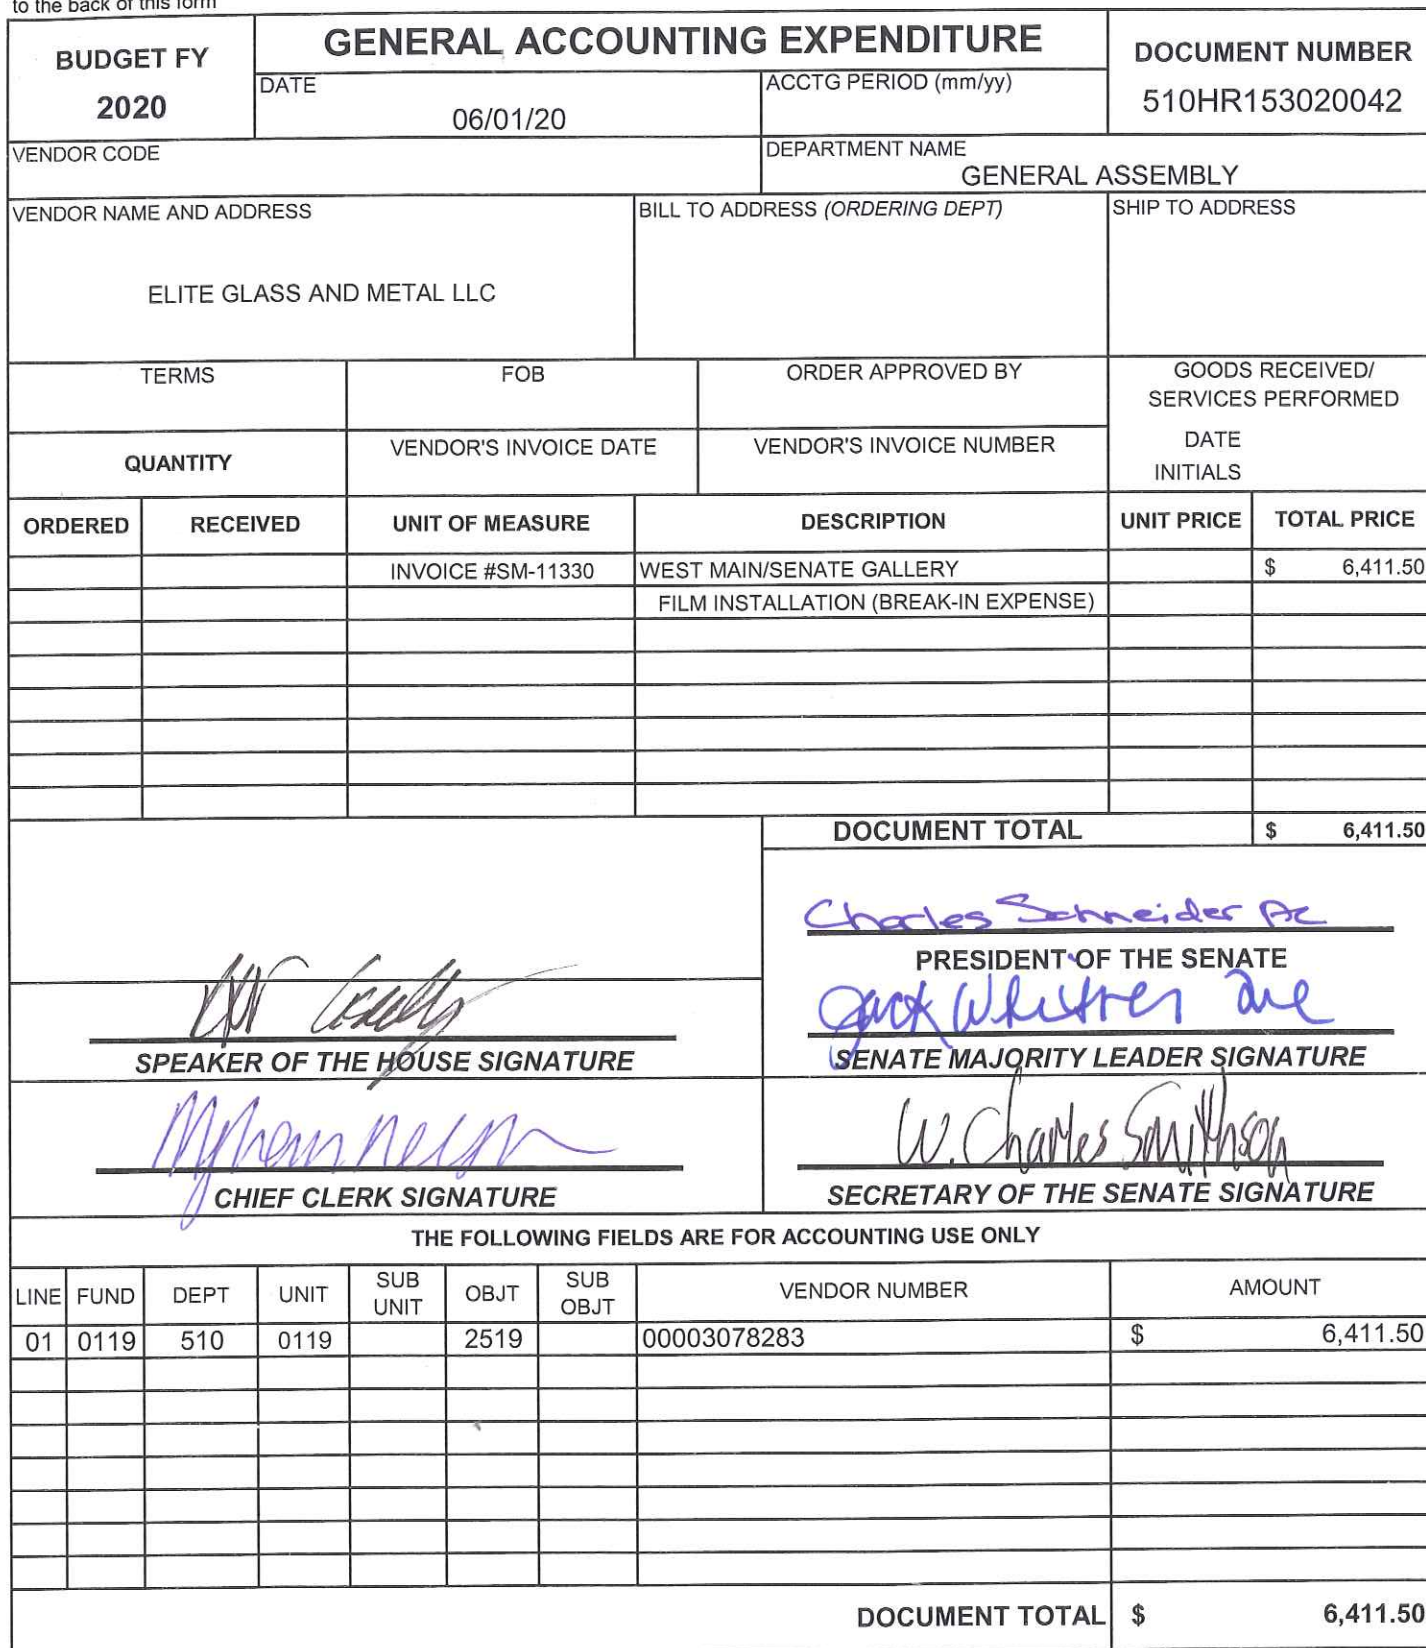 to the back of this form
BUDGET FY
2020
GENERAL ACCOUNTING EXPENDITURE
DOCUMENT NUMBER
510HR153020042
DATE
06/01/20
ACCTG PERIOD (mm/yy)
VENDOR CODE
DEPARTMENT NAME
GENERAL ASSEMBLY
VENDOR NAME AND ADDRESS
ELITE GLASS AND METAL LLC
BILL TO ADDRESS (ORDERING DEPT)
SHIP TO ADDRESS
TERMS
FOB
ORDER APPROVED BY
GOODS RECEIVED/
SERVICES PERFORMED
DATE
INITIALS
QUANTITY
VENDOR'S INVOICE DATE
VENDOR'S INVOICE NUMBER
ORDERED RECEIVED UNIT OF MEASURE DESCRIPTION UNIT PRICE TOTAL PRICE
INVOICE #SM-11330 WEST MAIN/SENATE GALLERY $ 6,411.50
FILM INSTALLATION (BREAK-IN EXPENSE)
DOCUMENT TOTAL $ 6,411.50
Charles Schneider
PRESIDENT OF THE SENATE
SPEAKER OF THE HOUSE SIGNATURE
Jack Whitver
SENATE MAJORITY LEADER SIGNATURE
CHIEF CLERK SIGNATURE
W. Charles Smithson
SECRETARY OF THE SENATE SIGNATURE
THE FOLLOWING FIELDS ARE FOR ACCOUNTING USE ONLY
LINE FUND DEPT UNIT SUB UNIT OBJT SUB OBJT VENDOR NUMBER AMOUNT
01 0119 510 0119 2519 00003078283 $ 6,411.50
DOCUMENT TOTAL $ 6,411.50